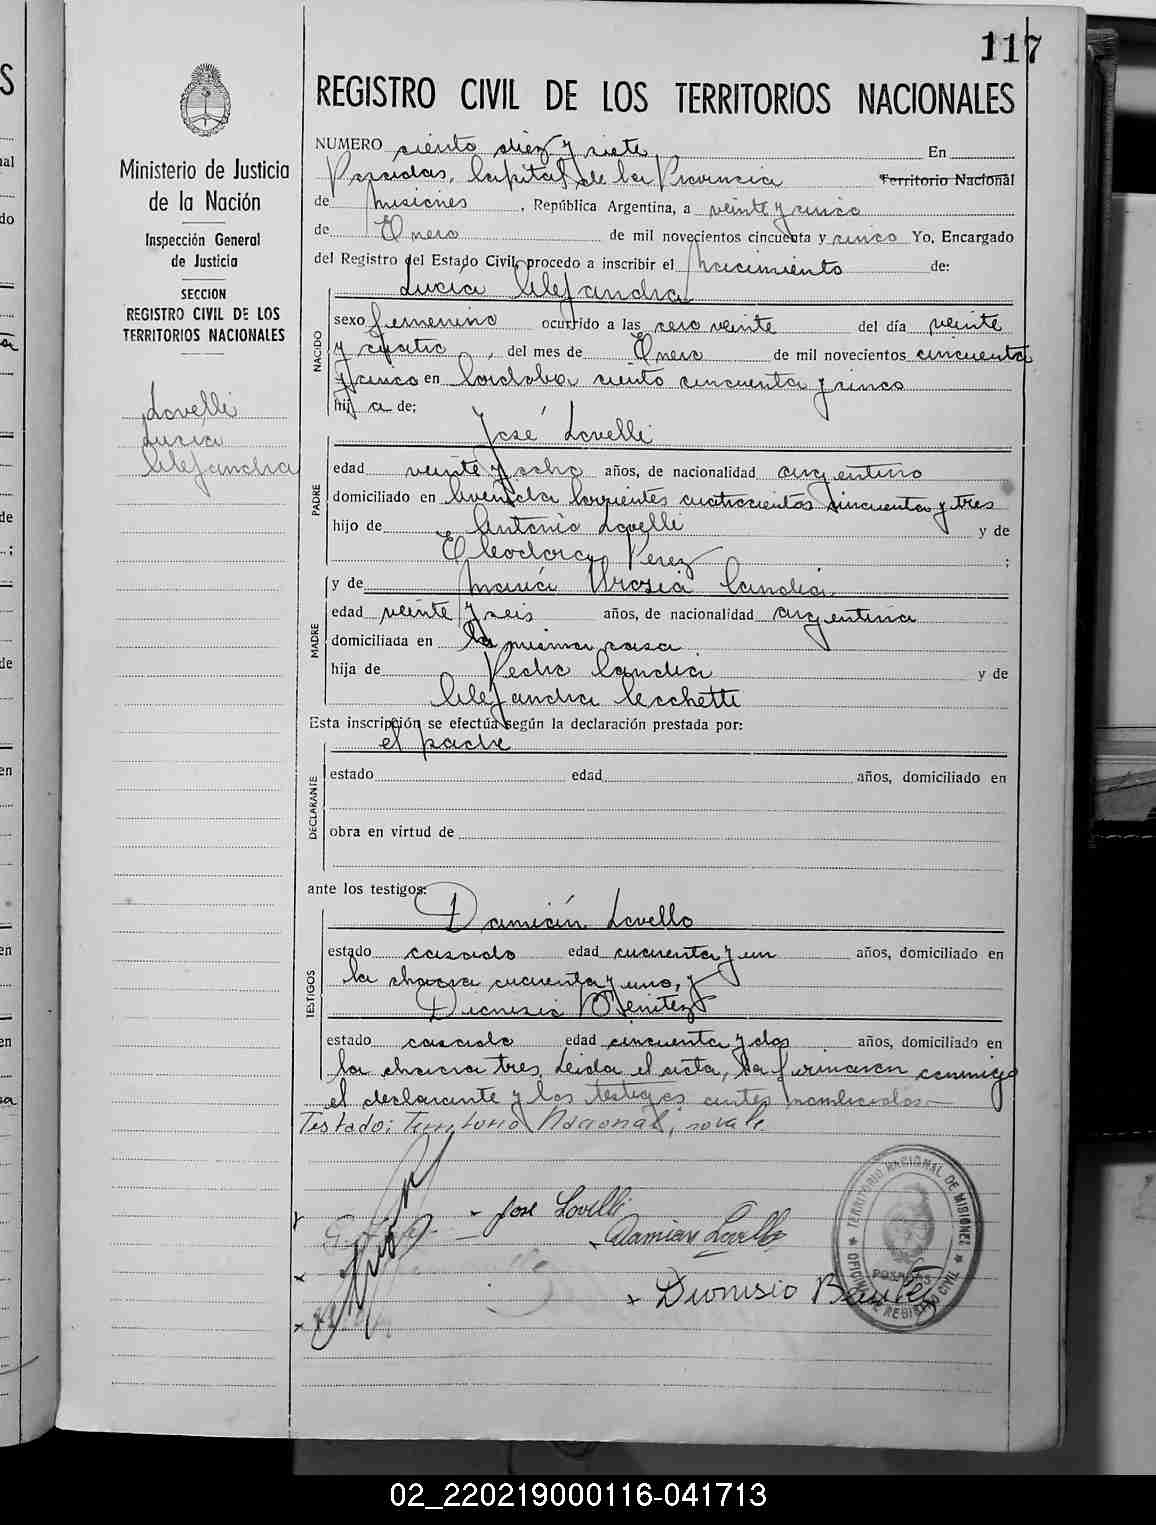 117
REGISTRO CIVIL DE LOS TERRITORIOS NACIONALES
Ministerio de Justicia
de la Nación
Inspección General
de Justicia
SECCION
REGISTRO CIVIL DE LOS
TERRITORIOS NACIONALES
Lovelli
Lucia
Alejandra
NUMERO ciento diez y siete En
Posadas, Capital de la Provincia Territorio Nacional
de Misiones, República Argentina, a veinte y cinco
de Enero de mil novecientos cincuenta y cinco Yo, Encargado
del Registro del Estado Civil, procedo a inscribir el Nacimiento de:
Lucia Alejandra
NACIDO
sexo femenino ocurrido a las cero veinte del día veinte
y cuatro, del mes de Enero de mil novecientos cincuenta
y cinco en Cordoba ciento cincuenta y cinco
hija de:
José Lovelli
PADRE
edad veinte y ocho años, de nacionalidad argentino
domiciliado en Avenida Corrientes cuatrocientos cincuenta y tres
hijo de Antonio Lovelli y de
Eleodora Perez ;
y de María Candia
MADRE
edad veinte y seis años, de nacionalidad argentina
domiciliada en la misma casa
hija de Pedro Candia y de
Alejandra Cecchetti
Esta inscripción se efectúa según la declaración prestada por:
el padre
DECLARANTE
estado edad años, domiciliado en
obra en virtud de
ante los testigos:
Damián Lovello
TESTIGOS
estado casado edad cuarenta y un años, domiciliado en
la chacra cuarenta y uno, y
Dionisio Benitez
estado casado edad cincuenta y dos años, domiciliado en
la chacra tres. Leida el acta, la firmaron conmigo
el declarante y los testigos antes nombrados.-
Testado: Territorio Nacional; no vale.
Jose Lovelli
Damian Lovello
Dionisio Benitez
TERRITORIO NACIONAL DE MISIONES
POSADAS
OFICINA DE REGISTRO CIVIL
02_220219000116-041713